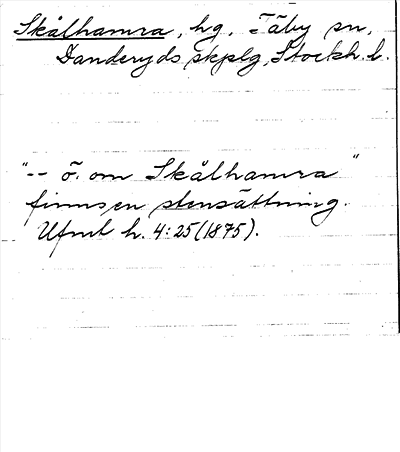 Skålhamra, hg, Täby sn,
Danderyds skplg, Stockh. l.
"-- ö. om Skålhamra"
finns en stensättning.
Ufmt h. 4:25 (1875).